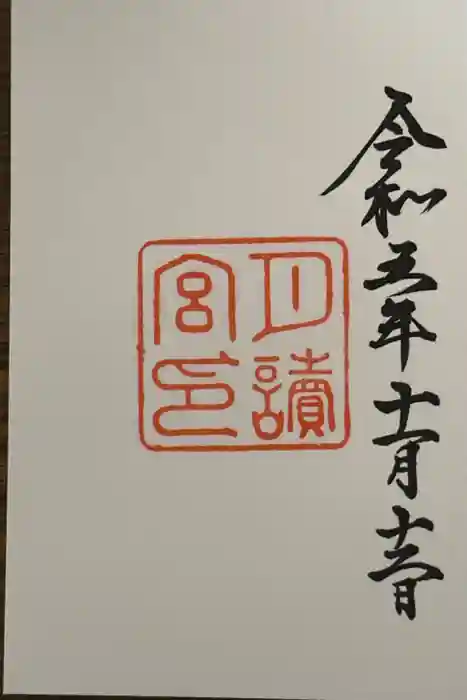 令和五年十一月十三日
月讀
宮印